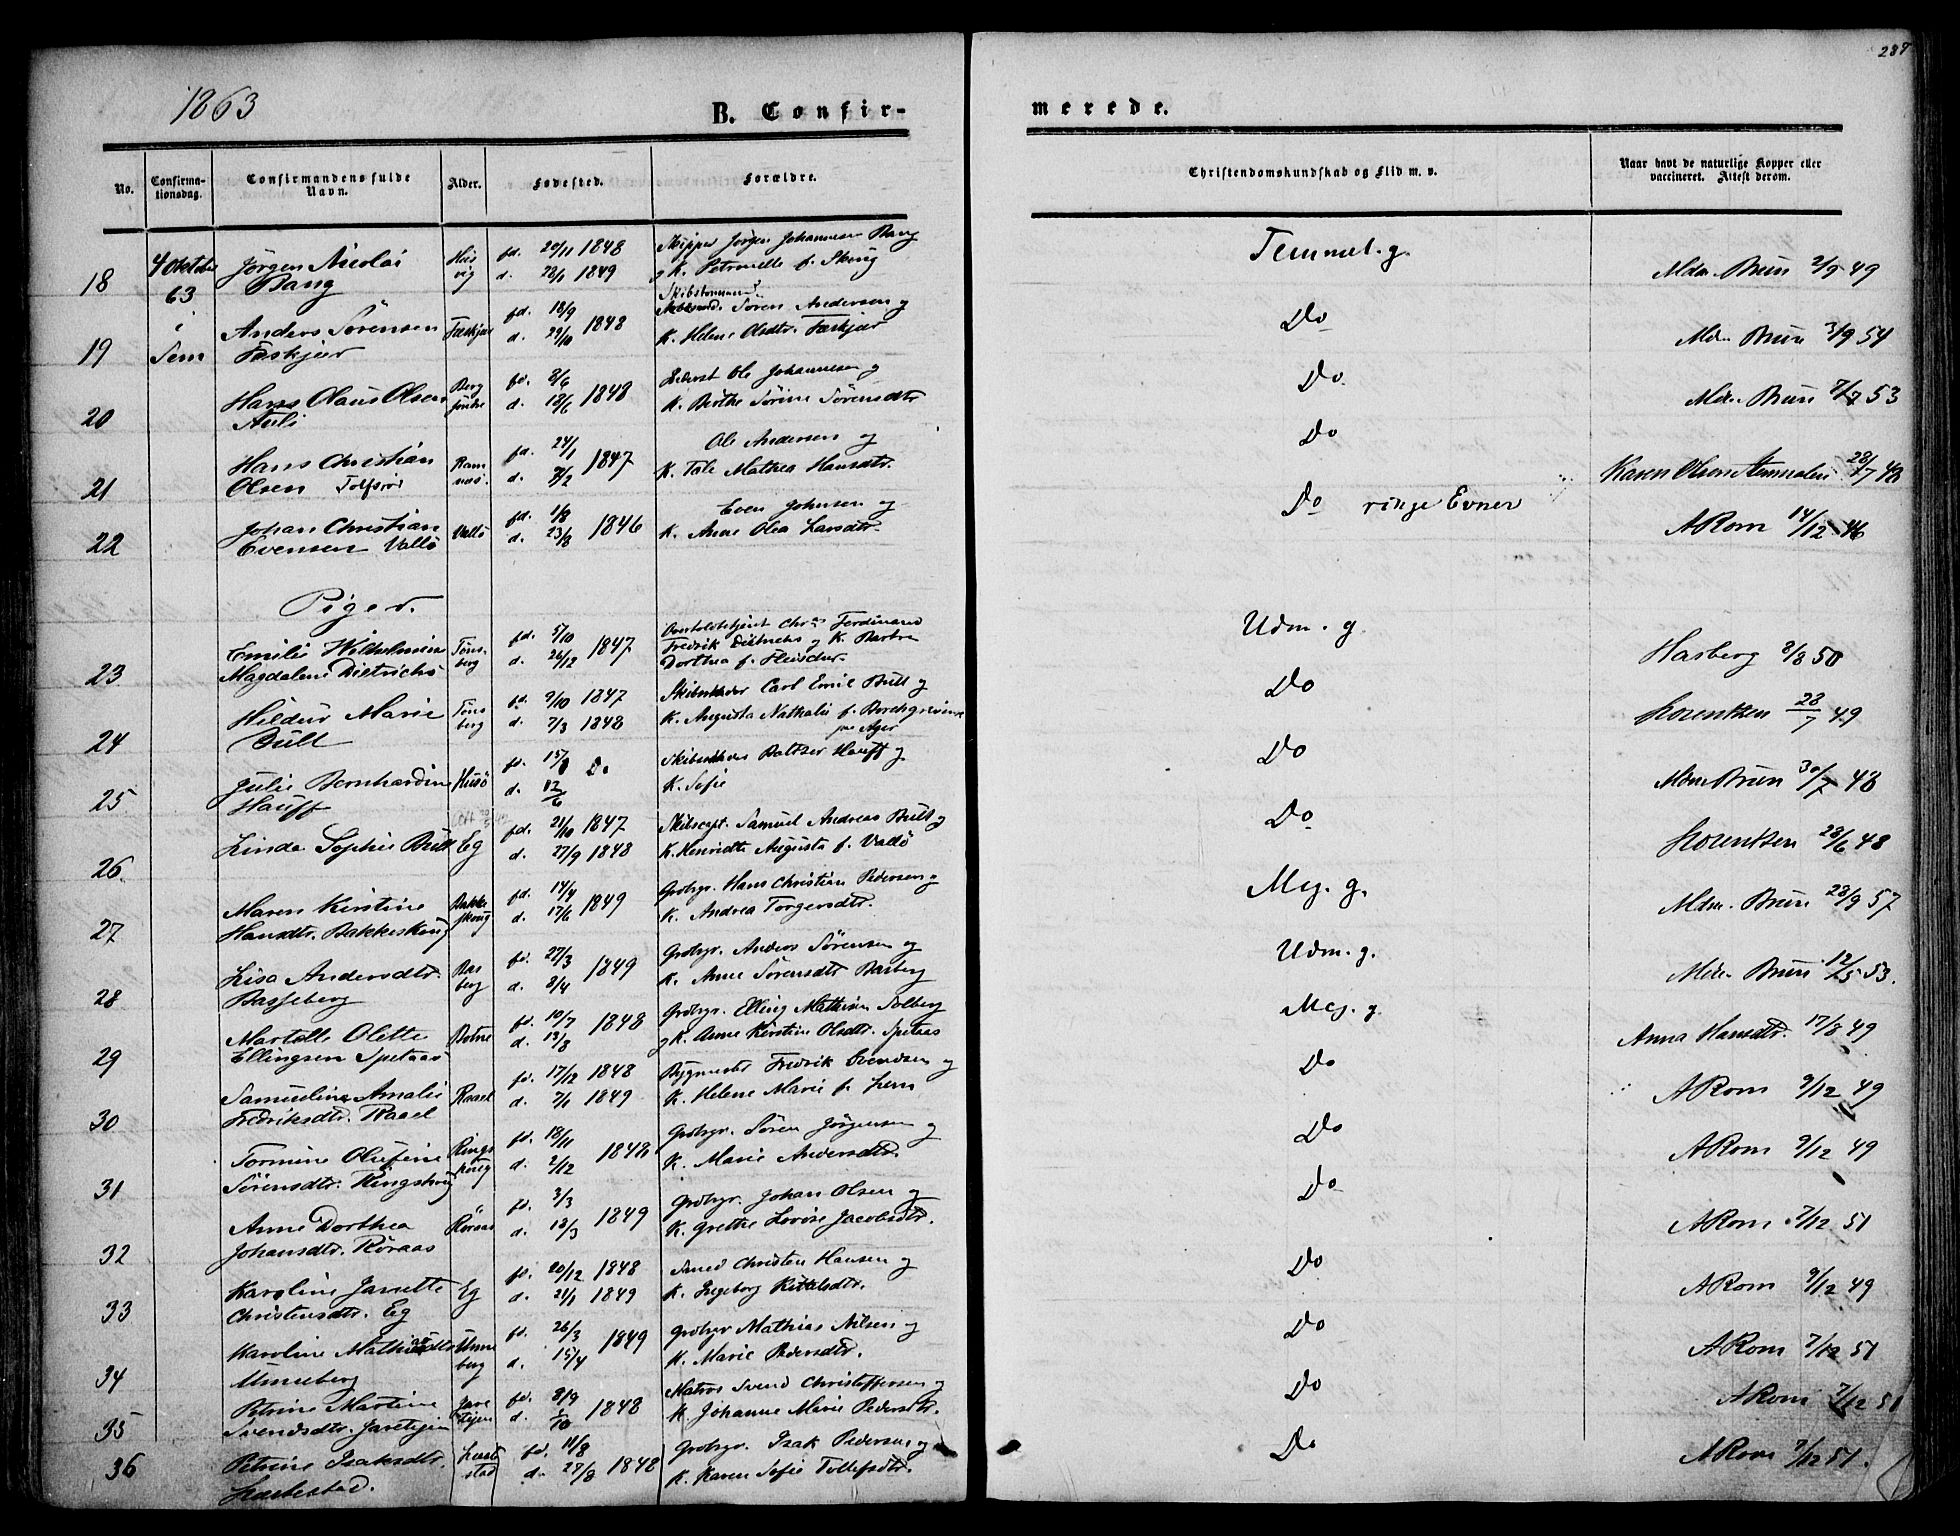 287
1863
B. Confir-
merede.
No.
Confirma-
tionsdag.
Confirmandens fulde
Navn.
Alder.
Fødested.
Forældre.
Christendomskundskab og Flid m. v.
Naar havt de naturlige Kopper eller
vaccineret. Attest derom.
18
4 Oktober
63
i
Sem
Jörgen Nicolai
Bang
fd. 20/11 1848
d. 28/1 1849
Skipper Jörgen Johannesen Bang
g K. Petronelle f. Skoug
Temmel. g.
Mdm. Brun 2/9 49
19
Anders Sörensen
Fæskjær
Fæskjær
fd. 18/9
d. 29/10 1848
Skibstömmermd
Sören Andersen og
K. Helene Olsdtr. Fæskjær
Do
Mdm Brun 3/9 54
20
Hans Olaus Olsen
Auli
fd. 8/6
d. 18/6 1848
Ole Johannesen g
K. Berthe Sörine Sörensdtr
Do
Mdm Brun 7/7 53
21
Hans Christian
Olsen Tolfsrö
Ram
næs.
fd. 24/1
d. 7/2 1847
Ole Andersen og
K. Tale Mathea Hansdtr.
Do
Karen Olsen 28/7 48
22
Johan Christian
Evensen Vallö
Vallö
fd. 1/8
d. 23/8 1846
Even Johnsen og
K. Anne Olea Larsdtr.
Do ringe Evner
A Rom 14/12 46
Piger.
23
Emilie Wilhelmine
Magdalene Dietrichs
Töns-
berg
fd. 5/10
d. 26/12 1847
Overtoldbetjent Chr. Ferdinand
Fredrik Dietrichs og K. Barbra
Dorthea f. Fleischer.
Udm. g.
Hasberg 8/8 50
24
Hildur Marie
Bull
Töns
berg
fd. 9/10 1847
d. 7/3 1848
Skibsreder Carl Emil Bull og
K. Augusta Nathalie f. Borchgrevink
Do
Lorentzen 28/7 49
25
Julie Bernhardine
Hauff
Husö
fd. 15/1 Do
d. 12/6
Baltser Hauff og
K. Sofie
Do
Mdm Brun 30/7 48
26
Linda Sophie Bull
Eg
fd. 21/10 1847
d. 27/9 1848
Skibscapt. Samuel Andreas Bull og
K. Henriette Augusta f. Vallö
Do
Lorentzen 28/6 48
27
Maren Kirstine
Hansdtr. Bakkeskoug
Bakke
skoug
fd. 14/4
d. 17/6 1849
Grdbgr. Hans Christian Pedersen g
K. Andrea Torgersdtr.
Meg. g.
Mdm. Brun 28/9 57
28
Lisa Andersdtr.
Basseberg
Bas
berg
fd. 27/3
d. 8/4 1849
Grdbgr. Anders Sörensen og
K. Anne Sörensdtr Basberg
Udm. g.
Mdm Brun 12/5 53.
29
Martelle Olette
Ellingsen Spetaas
Botne
fd. 10/7
d. 13/8 1848
Grdbgr. Elling Mathisen Solberg
g K. Anne Kirstine Olsdtr. Spetaas
Meg. g
Anna Hansdtr. 17/8 49
30
Samueline Amalie
Fredriksdtr. Raael
Raael
fd. 17/12 1848
d. 7/1 1849
Bygmester Fredrik Svendsen og
K. Helene Marie f. Lem
Do
A Rom 9/12 49
31
Tormine Olufine
Sörensdtr. Ringshoug
Rings
houg
fd. 18/11
d. 2/12 1848
Grdbgr. Sören Jörgensen og
K. Marie Andersdtr.
Do
A Rom 9/12 49
32
Anne Dorthea
Johansdtr. Röraas
Röraas
fd. 3/3
d. 18/3 1849
Grdbgr. Johan Olsen og
K. Grethe Lovise Jacobsdtr.
Do
A Rom 7/12 51
33
Karoline Janette
Christensdtr. Eg
Eg
fd. 20/12 1848
d. 21/1 1849
Smed Christen Hansen og
K. Ingeborg Kittelsdtr.
Do
A Rom 9/12 49
34
Karoline Mathiasdtr
Unneberg
Unne
berg
fd. 26/3
d. 15/4 1849
Grdbgr Mathias Nilsen og
K. Marie Pedersdtr.
Do
A Rom 7/12 51
35
Petrine Martine
Svendsdtr. Jaretejen
Jare
tejen
fd. 8/9
d. 1/10 1848
Matros Svend Christoffersen og
K. Johanne Marie Pedersdtr.
Do
A Rom 7/12 51
36
Petrine Isaksdtr.
fd. 11/8
d. 28/8 1848
Grdbgr. Isak Pedersen og
K. Karen Sofie Tollefsdtr.
Do
A Rom 7/12 51.